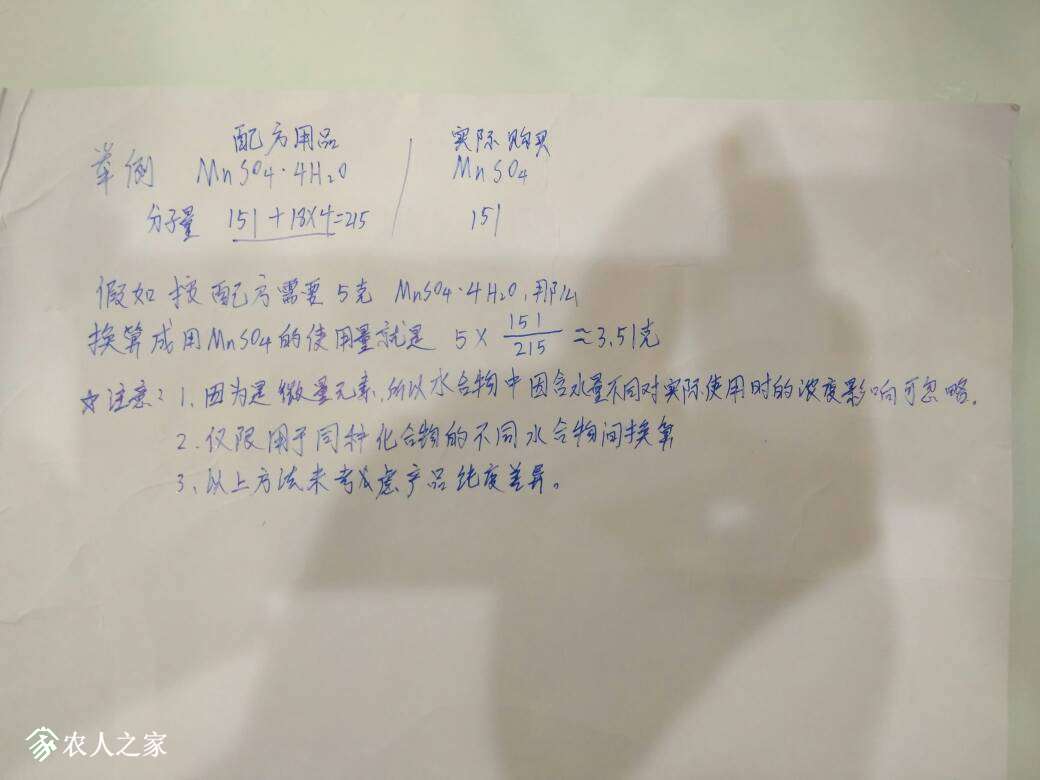 配方用品 实际购买
举例 MnSO4·4H2O MnSO4
分子量 151+18×4=215 151
假如按配方需要5克 MnSO4·4H2O,那么
换算成用MnSO4的使用量就是 5× 151/215 ≈3.51克
☆注意:1.因为是微量元素,所以水合物中因含水量不同对实际使用时的浓度影响可忽略。
2.仅限用于同种化合物的不同水合物间换算
3.以上方法未考虑产品纯度差异。
农人之家